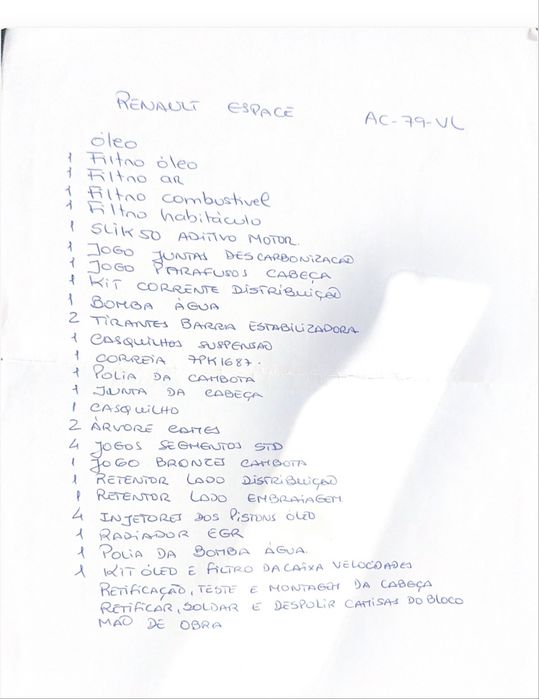 RENAULT ESPACE AC-79-VL
óleo
1 Filtro óleo
1 Filtro ar
1 Filtro combustivel
1 Filtro habitáculo
1 SLIK 50 ADITIVO MOTOR.
1 JOGO JUNTAS DESCARBONIZACÃO
1 JOGO PARAFUSOS CABEÇA
1 KIT CORRENTE DISTRIBUIÇÃO
1 BOMBA ÁGUA
2 TIRANTES BARRIA ESTABILIZADORA
1 CASQUILHOS SUSPENSÃO
1 CORREIA 7PK1687.
1 POLIA DA CAMBOTA
1 JUNTA DA CABEÇA
1 CASQUILHO
2 ÁRVORE CAMES
4 JOGOS SEGMENTOS STD
1 JOGO BRONZES CAMBOTA
1 RETENTOR LADO DISTRIBUIÇÃO
1 RETENTOR LADO EMBRAIAGEM
4 INJETORES DOS PISTONS ÓLEO
1 RADIADOR EGR
1 POLIA DA BOMBA ÁGUA.
1 KIT ÓLEO E FILTRO DA CAIXA VELOCIDADES
RETIFICAÇÃO, TESTE E MONTAGEM DA CABEÇA
RETIFICAR, SOLDAR E DESPOLIR CAMISAS DO BLOCO
MÃO DE OBRA